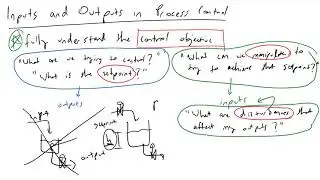 Inputs and Outputs in Process Control
fully understand the control objective
"What are we trying to control?"
"What is the setpoint?"
"What can we manipulate to
try to achieve that setpoint?"
outputs
inputs
"What are disturbances that
affect my outputs?"
input
output
setpoint
h